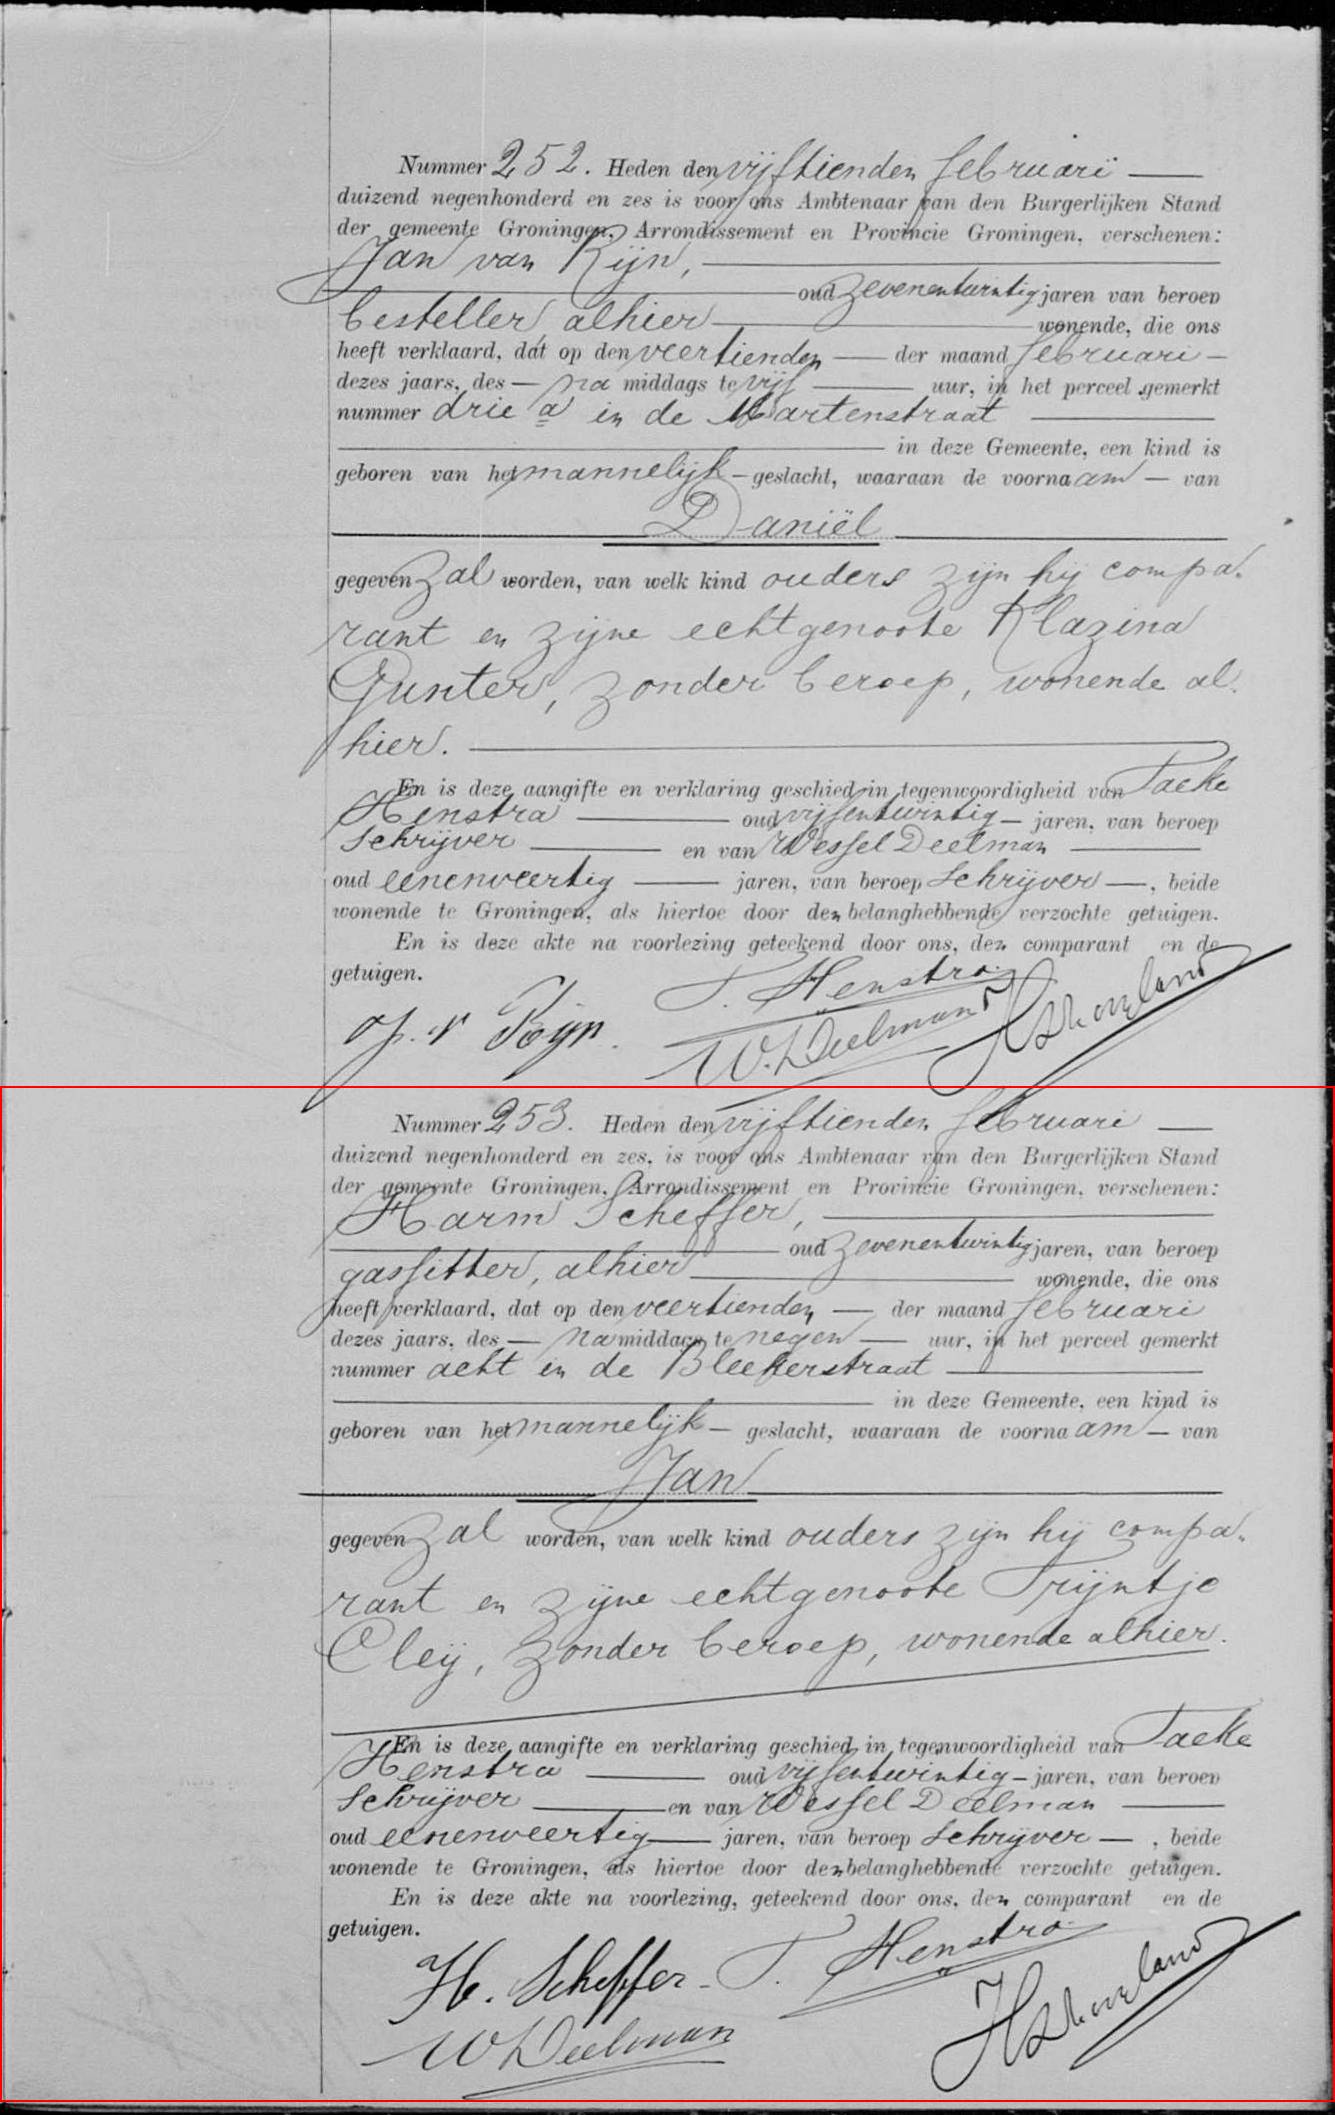 Nummer 252. Heden den vijftienden februari
duizend negenhonderd en zes is voor ons Ambtenaar van den Burgerlijken Stand
der gemeente Groningen, Arrondissement en Provincie Groningen, verschenen:
Jan van Rijn,
oud zevenentwintig jaren van beroep
besteller, alhier wonende, die ons
heeft verklaard, dat op den veertienden der maand februari
dezes jaars, des na middags te vijf uur, in het perceel gemerkt
nummer drie a in de Martenstraat
in deze Gemeente, een kind is
geboren van het mannelijk geslacht, waaraan de voornaam van
Daniël
gegeven zal worden, van welk kind ouders zijn hij compa-
rant en zijne echtgenoote Klazina
Gunter, zonder beroep, wonende al-
hier.
En is deze aangifte en verklaring geschied in tegenwoordigheid van Taeke
Henstra oud vijfentwintig jaren, van beroep
schrijver en van Wessel Deelman
oud eenenveertig jaren, van beroep schrijver, beide
wonende te Groningen, als hiertoe door den belanghebbende verzochte getuigen.
En is deze akte na voorlezing geteekend door ons, den comparant en de
getuigen.
T. Henstra
v Rijn. W. Deelman
Nummer 253. Heden den vijftienden februari
duizend negenhonderd en zes, is voor ons Ambtenaar van den Burgerlijken Stand
der gemeente Groningen, Arrondissement en Provincie Groningen, verschenen:
Harm Scheffer,
oud zevenentwintig jaren, van beroep
gasfitter, alhier wonende, die ons
heeft verklaard, dat op den veertienden der maand februari
dezes jaars, des na middags te negen uur, in het perceel gemerkt
nummer acht in de Bleekerstraat
in deze Gemeente, een kind is
geboren van het mannelijk geslacht, waaraan de voornaam van
Jan
gegeven zal worden, van welk kind ouders zijn hij compa-
rant en zijne echtgenoote Trijntje
Cleij, zonder beroep, wonende alhier.
En is deze aangifte en verklaring geschied in tegenwoordigheid van Taeke
Henstra oud vijfentwintig jaren, van beroep
schrijver en van Wessel Deelman
oud eenenveertig jaren, van beroep schrijver, beide
wonende te Groningen, als hiertoe door den belanghebbende verzochte getuigen.
En is deze akte na voorlezing, geteekend door ons, den comparant en de
getuigen.
H. Scheffer T. Henstra
W Deelman